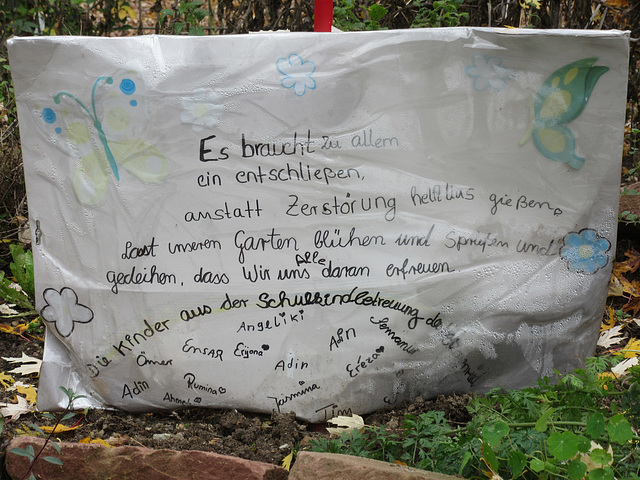 Es braucht zu allem
ein entschließen,
anstatt Zerstörung helft uns gießen.
Lasst unseren Garten blühen und Sprießen und
gedeihen, dass Wir uns Alle daran erfreuen
Die Kinder aus der Schulkindbetreuung
Angeliki
Ömer Ensar Erijona Adin Adin
Adin Rumina Ereza
Ahmet Jasmina Tim